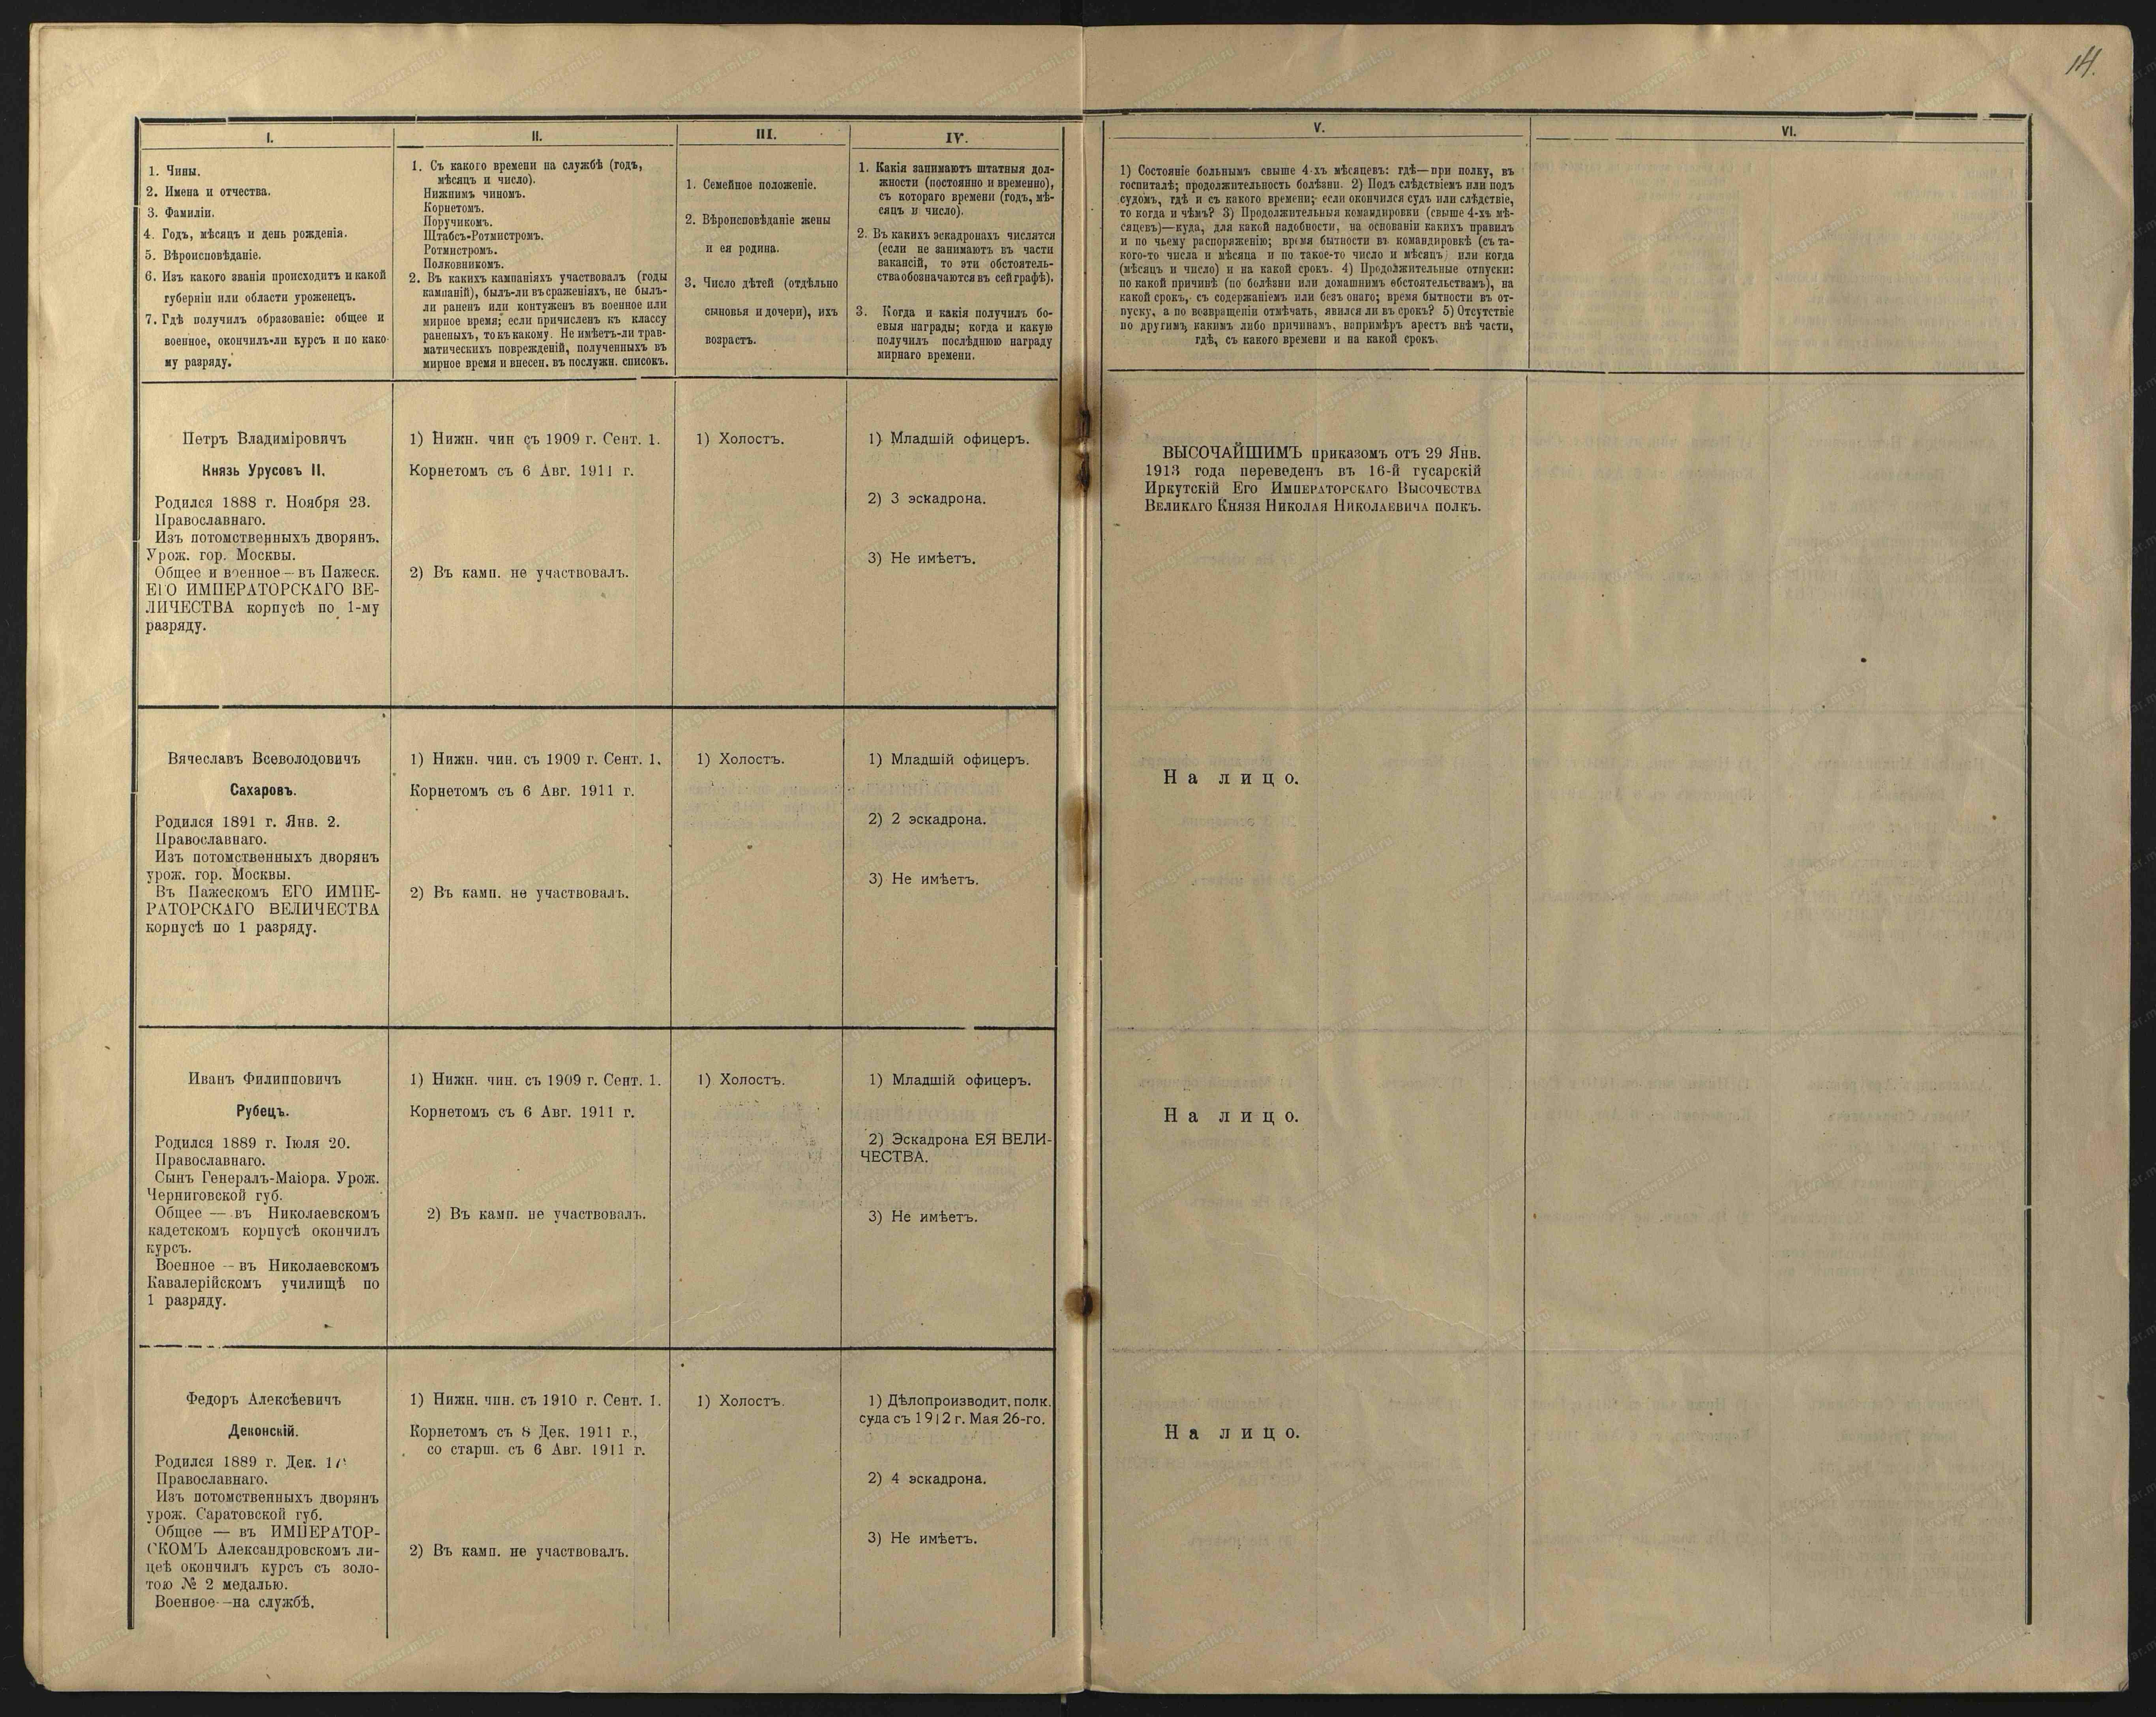 14.
I.
1. Чины.
2. Имена и отчества.
3. Фамиліи.
4. Годъ, мѣсяцъ и день рожденія.
5. Вѣроисповѣданіе.
6. Изъ какого званія происходитъ и какой
губерніи или области уроженецъ.
7. Гдѣ получилъ образованіе: общее и
военное, окончилъ-ли курсъ и по како-
му разряду.
II.
1. Съ какого времени на службѣ (годъ,
мѣсяцъ и число).
Нижнимъ чиномъ.
Корнетомъ.
Поручикомъ.
Штабсъ-Ротмистромъ.
Ротмистромъ.
Полковникомъ.
2. Въ какихъ кампаніяхъ участвовалъ (годы
кампаній), былъ-ли въ сраженіяхъ, не былъ-
ли раненъ или контуженъ въ военное или
мирное время; если причисленъ къ классу
раненыхъ, то къ какому. Не имѣетъ-ли трав-
матическихъ поврежденій, полученныхъ въ
мирное время и внесен. въ послужн. списокъ.
III.
1. Семейное положеніе.
2. Вѣроисповѣданіе жены
и ея родина.
3. Число дѣтей (отдѣльно
сыновья и дочери), ихъ
возрастъ.
IV.
1. Какія занимаютъ штатныя дол-
жности (постоянно и временно),
съ котораго времени (годъ, мѣ-
сяцъ и число).
2. Въ какихъ эскадронахъ числятся
(если не занимаютъ въ части
вакансій, то эти обстоятель-
ства обозначаются въ сей графѣ).
3. Когда и какія получилъ бо-
евыя награды; когда и какую
получилъ послѣднюю награду
мирнаго времени.
V.
1) Состояніе больнымъ свыше 4-хъ мѣсяцевъ: гдѣ—при полку, въ
госпиталѣ; продолжительность болѣзни. 2) Подъ слѣдствіемъ или подъ
судомъ, гдѣ и съ какого времени; если окончился судъ или слѣдствіе,
то когда и чѣмъ? 3) Продолжительныя командировки (свыше 4-хъ мѣ-
сяцевъ)—куда, для какой надобности, на основаніи какихъ правилъ
и по чьему распоряженію; время бытности въ командировкѣ (съ та-
кого-то числа и мѣсяца и по такое-то число и мѣсяцъ) или когда
(мѣсяцъ и число) и на какой срокъ. 4) Продолжительные отпуски:
по какой причинѣ (по болѣзни или домашнимъ обстоятельствамъ), на
какой срокъ, съ содержаніемъ или безъ онаго; время бытности въ от-
пуску, а по возвращеніи отмѣчать, явился ли въ срокъ? 5) Отсутствіе
по другимъ, какимъ либо причинамъ, напримѣръ арестъ внѣ части,
гдѣ, съ какого времени и на какой срокъ.
VI.
Петръ Владиміровичъ
Князь Урусовъ II.
Родился 1888 г. Ноября 23.
Православнаго.
Изъ потомственныхъ дворянъ.
Урож. гор. Москвы.
Общее и военное—въ Пажеск.
ЕГО ИМПЕРАТОРСКАГО ВЕ-
ЛИЧЕСТВА корпусѣ по 1-му
разряду.
1) Нижн. чин съ 1909 г. Сент. 1.
Корнетомъ съ 6 Авг. 1911 г.
2) Въ камп. не участвовалъ.
1) Холостъ.
1) Младшій офицеръ.
2) 3 эскадрона.
3) Не имѣетъ.
ВЫСОЧАЙШИМЪ приказомъ отъ 29 Янв.
1913 года переведенъ въ 16-й гусарскій
Иркутскій Его Императорскаго Высочества
Великаго Князя Николая Николаевича полкъ.
Вячеславъ Всеволодовичъ
Сахаровъ.
Родился 1891 г. Янв. 2.
Православнаго.
Изъ потомственныхъ дворянъ
урож. гор. Москвы.
Въ Пажескомъ ЕГО ИМПЕ-
РАТОРСКАГО ВЕЛИЧЕСТВА
корпусѣ по 1 разряду.
1) Нижн. чин. съ 1909 г. Сент. 1.
Корнетомъ съ 6 Авг. 1911 г.
2) Въ камп. не участвовалъ.
1) Холостъ.
1) Младшій офицеръ.
2) 2 эскадрона.
3) Не имѣетъ.
На лицо.
Иванъ Филипповичъ
Рубецъ.
Родился 1889 г. Іюля 20.
Православнаго.
Сынъ Генералъ-Маіора. Урож.
Черниговской губ.
Общее — въ Николаевскомъ
кадетскомъ корпусѣ окончилъ
курсъ.
Военное — въ Николаевскомъ
Кавалерійскомъ училищѣ по
1 разряду.
1) Нижн. чин. съ 1909 г. Сент. 1.
Корнетомъ съ 6 Авг. 1911 г.
2) Въ камп. не участвовалъ.
1) Холостъ.
1) Младшій офицеръ.
2) Эскадрона ЕЯ ВЕЛИ-
ЧЕСТВА.
3) Не имѣетъ.
На лицо.
Федоръ Алексѣевичъ
Деконскій.
Родился 1889 г. Дек.
Православнаго.
Изъ потомственныхъ дворянъ
урож. Саратовской губ.
Общее — въ ИМПЕРАТОР-
СКОМЪ Александровскомъ ли-
цеѣ окончилъ курсъ съ золо-
тою № 2 медалью.
Военное—на службѣ.
1) Нижн. чин. съ 1910 г. Сент. 1.
Корнетомъ съ 8 Дек. 1911 г.,
со старш. съ 6 Авг. 1911 г.
2) Въ камп. не участвовалъ.
1) Холостъ.
1) Дѣлопроизводит. полк.
суда съ 1912 г. Мая 26-го.
2) 4 эскадрона.
3) Не имѣетъ.
На лицо.
www.gwar.mil.ru